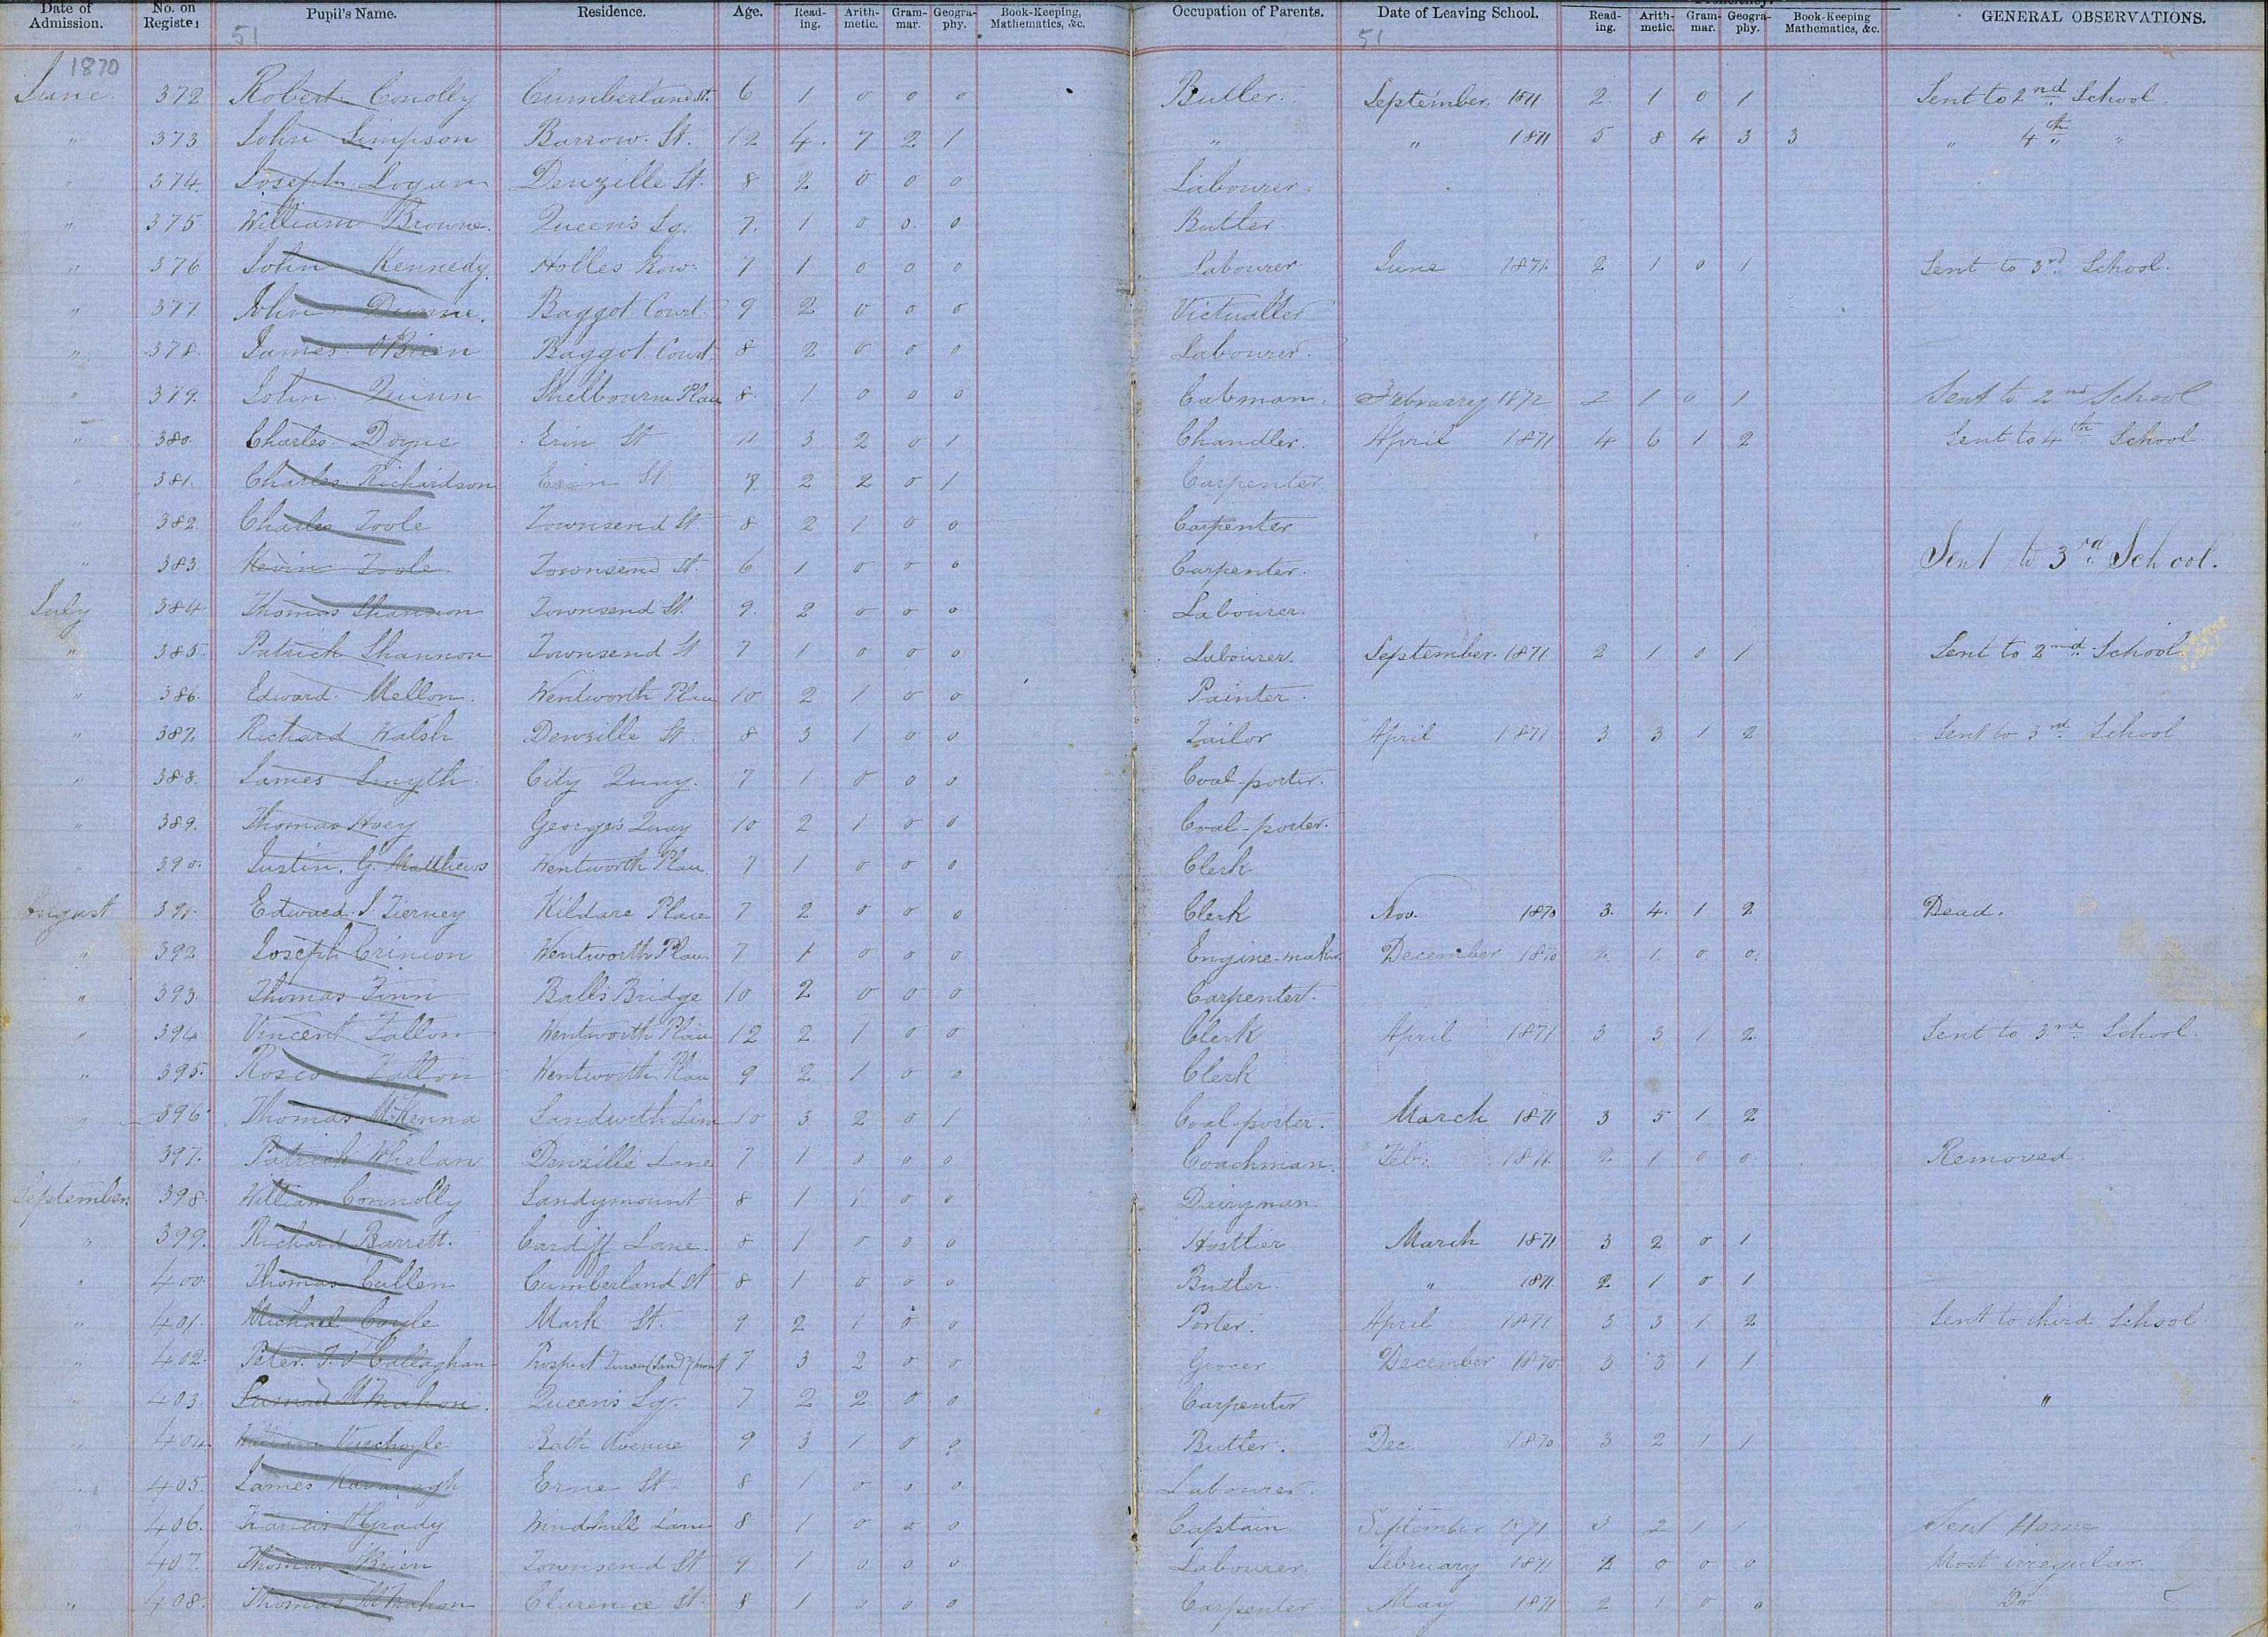 Date of Admission. No. on Register Pupil's Name. Residence. Age. Reading. Arithmetic. Grammar. Geography. Book-Keeping, Mathematics, &c. Occupation of Parents. Date of Leaving School. Reading. Arithmetic. Grammar. Geography. Book-Keeping Mathematics, &c. GENERAL OBSERVATIONS.
51 51
1870
June 372 Robert Conolly Cumberland St. 6 1 0 0 0 Butler. September. 1871. 2 1 0 1 Sent to 2nd School
" 373 John Simpson Barrow St. 12 4 7 2 1 " " 1871 5 8 4 3 3 " 4th "
" 374. Joseph Logan Denzille St. 8 2 0 0 0 Labourer.
" 375. William Browne. Queen's Sq. 7. 1 0 0 0 Butler
" 376 John Kennedy. Holles Row 7 1 0 0 0 Labourer June 1871 2 1 0 1 Sent to 3rd School.
" 377 John Dunne. Baggot Court. 9 2 0 0 0 Victualler
" 378. James O'Brien Baggot Court 8 2 0 0 0 Labourer.
" 379. John Quinn Shelbourne Place 8. 1 0 0 0 Cabman. February 1872 2 1 0 1 Sent to 2nd School
" 380. Charles Doyne Erin St 11 3 2 0 1 Chandler. April 1871 4 6 1 2 Sent to 4th School.
" 381. Charles Richardson Erin St 2 2 0 1 Carpenter
" 382. Charles Toole Townsend St 8 2 1 0 0 Carpenter
" 383 Kevin Toole Townsend St. 6 1 0 0 0 Carpenter. Sent to 3rd School.
July 384 Thomas Shannon Townsend St. 9. 2 0 0 0 Labourer.
" 385. Patrick Shannon Townsend St 7 1 0 0 0 Labourer. September. 1871 2 1 0 1 Sent to 2nd School
" 386. Edward Mellon. Wentworth Place 10 2 1 0 0 Painter.
" 387. Richard Walsh Denzille St. 8 3 1 0 0 Tailor April 1871 3 3 1 2 Sent to 3rd School
" 388. James Smyth. City Quay. 7 1 0 0 0 Coal-porter.
" 389. Thomas Hoey George's Quay 10 2 1 0 0 Coal-porter.
" 390. Justin. G. Matthews Wentworth Place 7 1 0 0 0 Clerk
August 391. Edward J. Tierney Kildare Place 7 2 0 0 0 Clerk Nov. 1870 3. 4. 1 2 Dead.
" 392 Joseph Crinion Wentworth Place 7 1 0 0 0 Engine-maker December 1870 2. 1. 0 0.
" 393. Thomas Finn Ball's Bridge 10 2 0 0 0 Carpenter.
" 394 Vincent Fallon Wentworth Place 12 2 1 0 0 Clerk April 1871 3 3 1 2. Sent to 3rd School.
" 395. Roscoe Fallon Wentworth Place 9 2 1 0 0 Clerk
" 396 Thomas McKenna Sandwith Lane 10 3 2 0 1 Coal-porter. March 1871 3 5 1 2
" 397. Patrick Whelan Denzille Lane 7 1 0 0 0 Coachman. Feb. 1871. 2 1 0 0 Removed.
September. 398. William Connolly Sandymount 8 1 1 0 0 Dairyman
" 399. Richard Barrett. Cardiff Lane. 8 1 0 0 0 Hosttier March 1871 3 2 0 1
" 400. Thomas Cullen Cumberland St 8 1 0 0 0 Butler. " 1871. 2 1 0 1
" 401. Michael Coyle Mark St. 9 2 1 0 0 Porter. April 1871 3 3 1 2 Sent to third School.
" 402. Peter. J. O'Callaghan Prospect Terrace (Sandymount 7 3 2 0 0 Grocer December 1870 3 3 1 1
" 403. McMahon. Queen's Sq. 7 2 2 0 0 Carpenter "
" 404. William Verschoyle Bath Avenue 9 3 1 0 0 Butler. Dec. 1870 3 2 1 1
" 405. James Kavanagh Erne St 8 1 0 0 0 Labourer.
" 406. Francis O'Grady Windmill Lane 8 1 0 0 0 Captain September 1871 3 2 1 1 Sent Home
" 407. Thomas O'Brien Townsend St 9 1 0 0 0 Labourer. February 1871 2 0 0 0 Most irregular
" 408. Thomas McMahon Clarence St. 8 1 0 0 0 Carpenter May 1871 2 1 0 0 Do